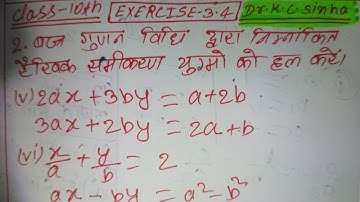 class-10th EXERCISE-3.4 Dr. K.C. Sinha
2. बज्र गुणन विधि द्वारा निम्नांकित
रैखिक समीकरण युग्मो को हल करें।
(v) 2ax+3by = a+2b
3ax+2by = 2a+b
(vi) x/a + y/b = 2
ax - by = a²-b²